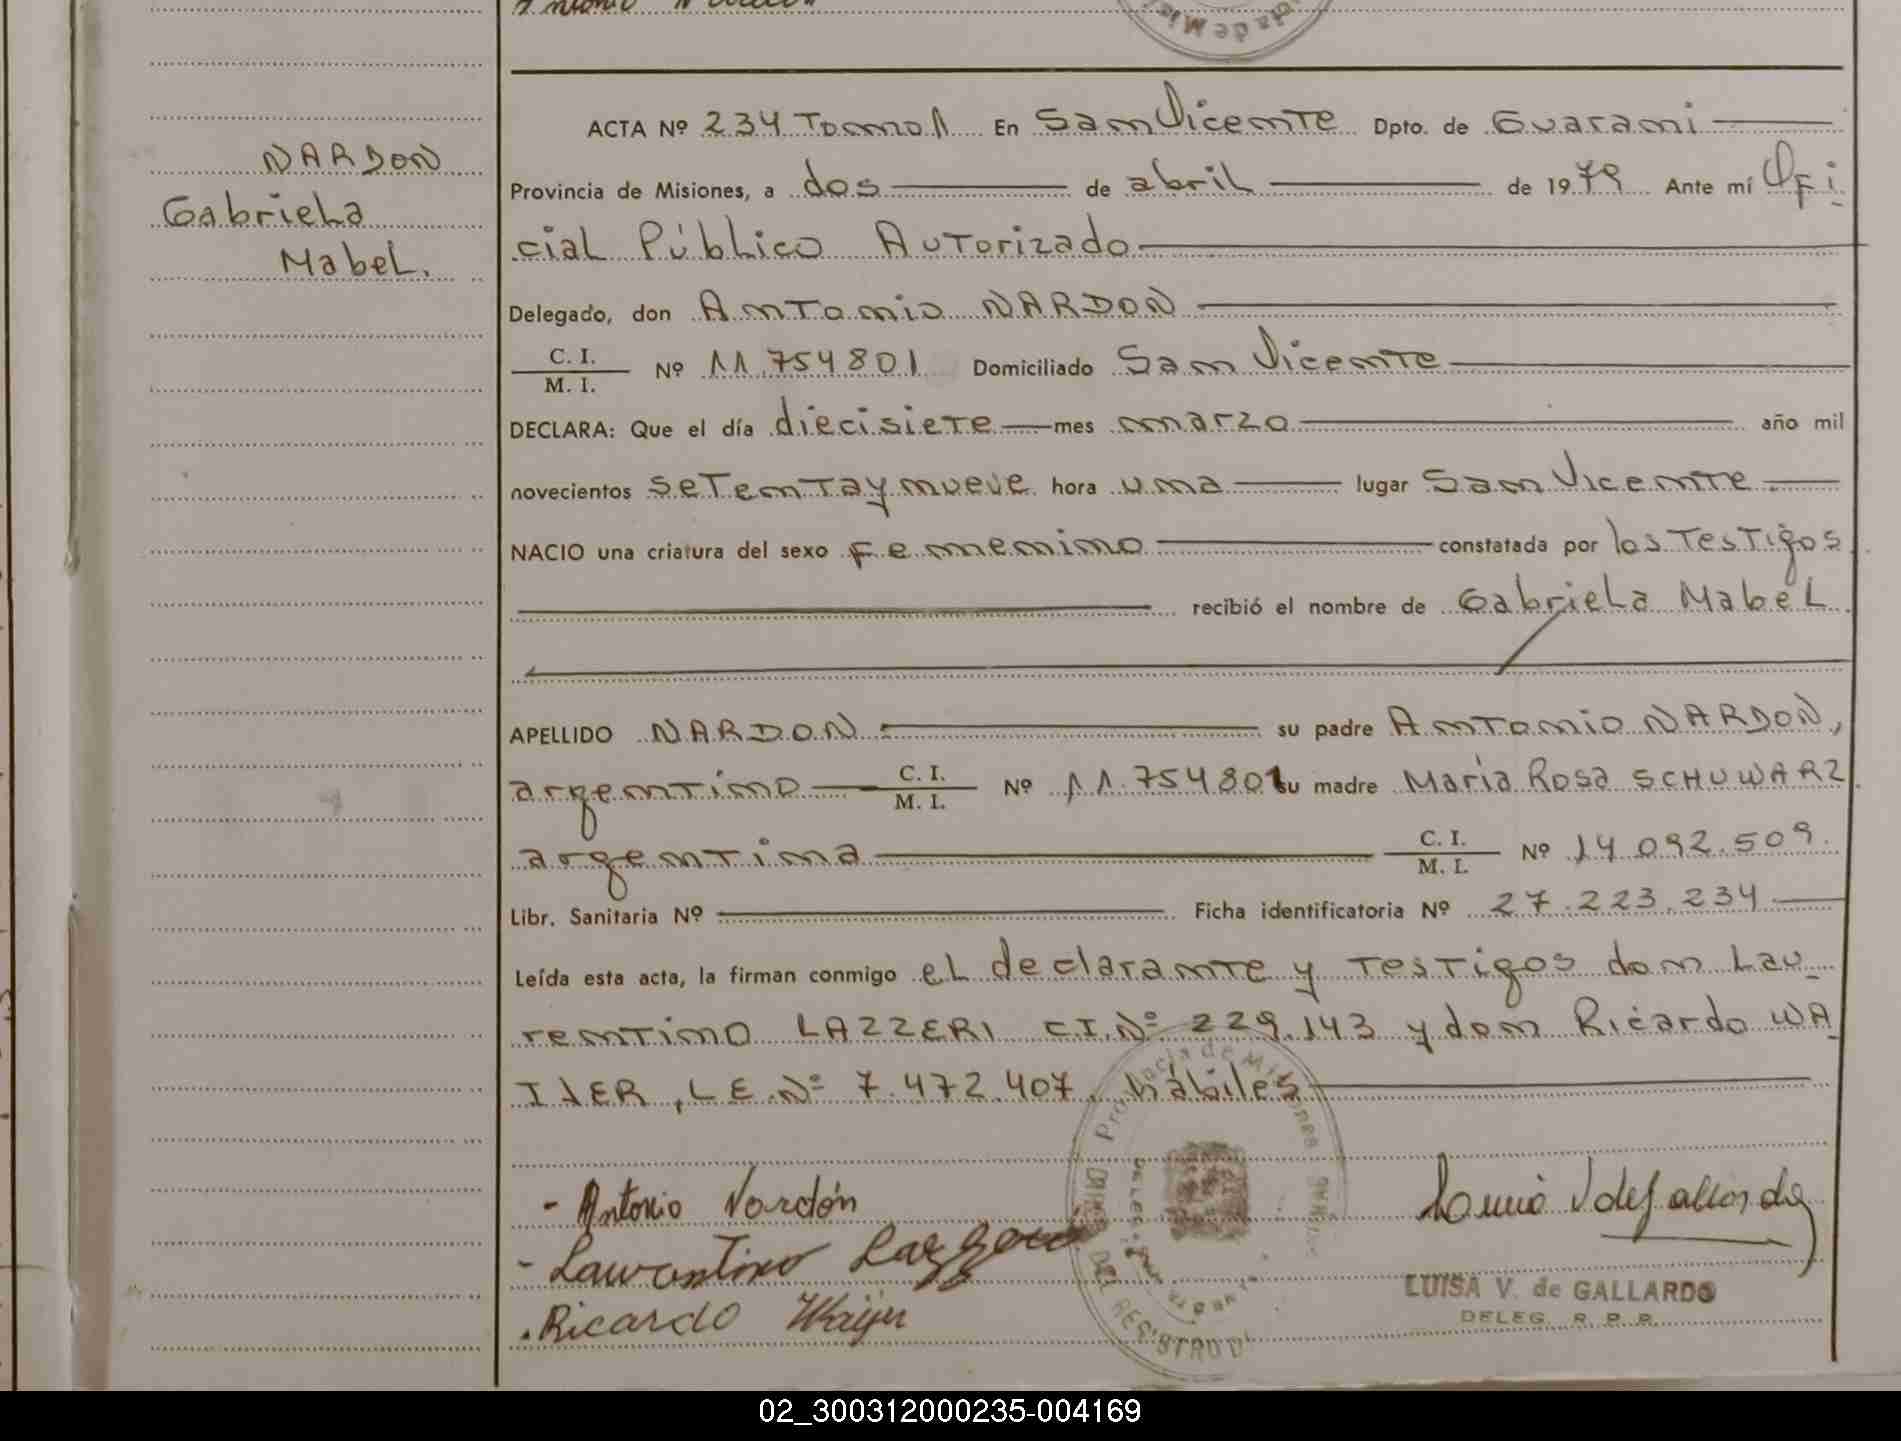 Antonio
da de Mis
ACTA Nº 234 Tomo 1 En San Vicente Dpto. de Guarani
NARDON
Provincia de Misiones, a dos de abril de 1979 Ante mí Ofi
Gabriela
cial Público Autorizado
Mabel.
Delegado, don Antonio NARDON
C. I.
M. I. Nº 11.754801 Domiciliado San Vicente
DECLARA: Que el día diecisiete mes marzo año mil
novecientos setenta y nueve hora una lugar San Vicente
NACIO una criatura del sexo femenino constatada por los testigos
recibió el nombre de Gabriela Mabel
APELLIDO NARDON su padre Antonio NARDON,
argentino C. I. M. I. Nº 11.754801 su madre María Rosa SCHUWARZ
argentina C. I. M. I. Nº 14.092.509.
Libr. Sanitaria Nº Ficha identificatoria Nº 27.223.234
Leída esta acta, la firman conmigo el declarante y testigos don Lau_
rentino LAZZERI C.I.Nº 229.143 y don Ricardo WA_
IJER, L.E.Nº 7.472.407, hábiles
Provincia de Misiones
DEL REGISTRO
- Antonio Nardón
- Laurentino Lazzeri
. Ricardo Waijer
LUISA V. de GALLARDO
DELEG. R. P. P.
02_300312000235-004169